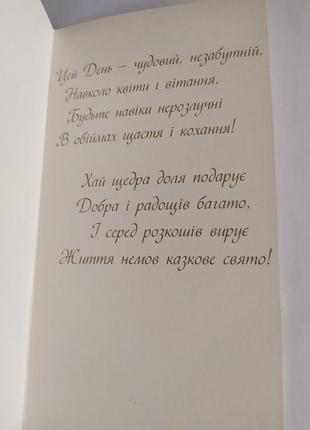 Цей День – чудовий, незабутній,
Навколо квіти і вітання,
Будьте навіки нерозлучні
В обіймах щастя і кохання!
Хай щедра доля подарує
Добра і радощів багато,
І серед розкошів вирує
Життя немов казкове свято!